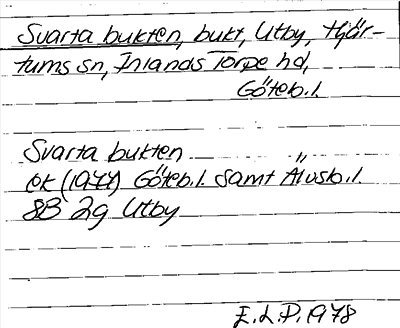 Svarta bukten, bukt, Utby, Hjär-
tums sn, Inlands Torpe hd,
Göteb.l.
Svarta bukten
ek (1977) Göteb.l. samt Älvsb.l.
8B 2g Utby
E.L.P. 1978